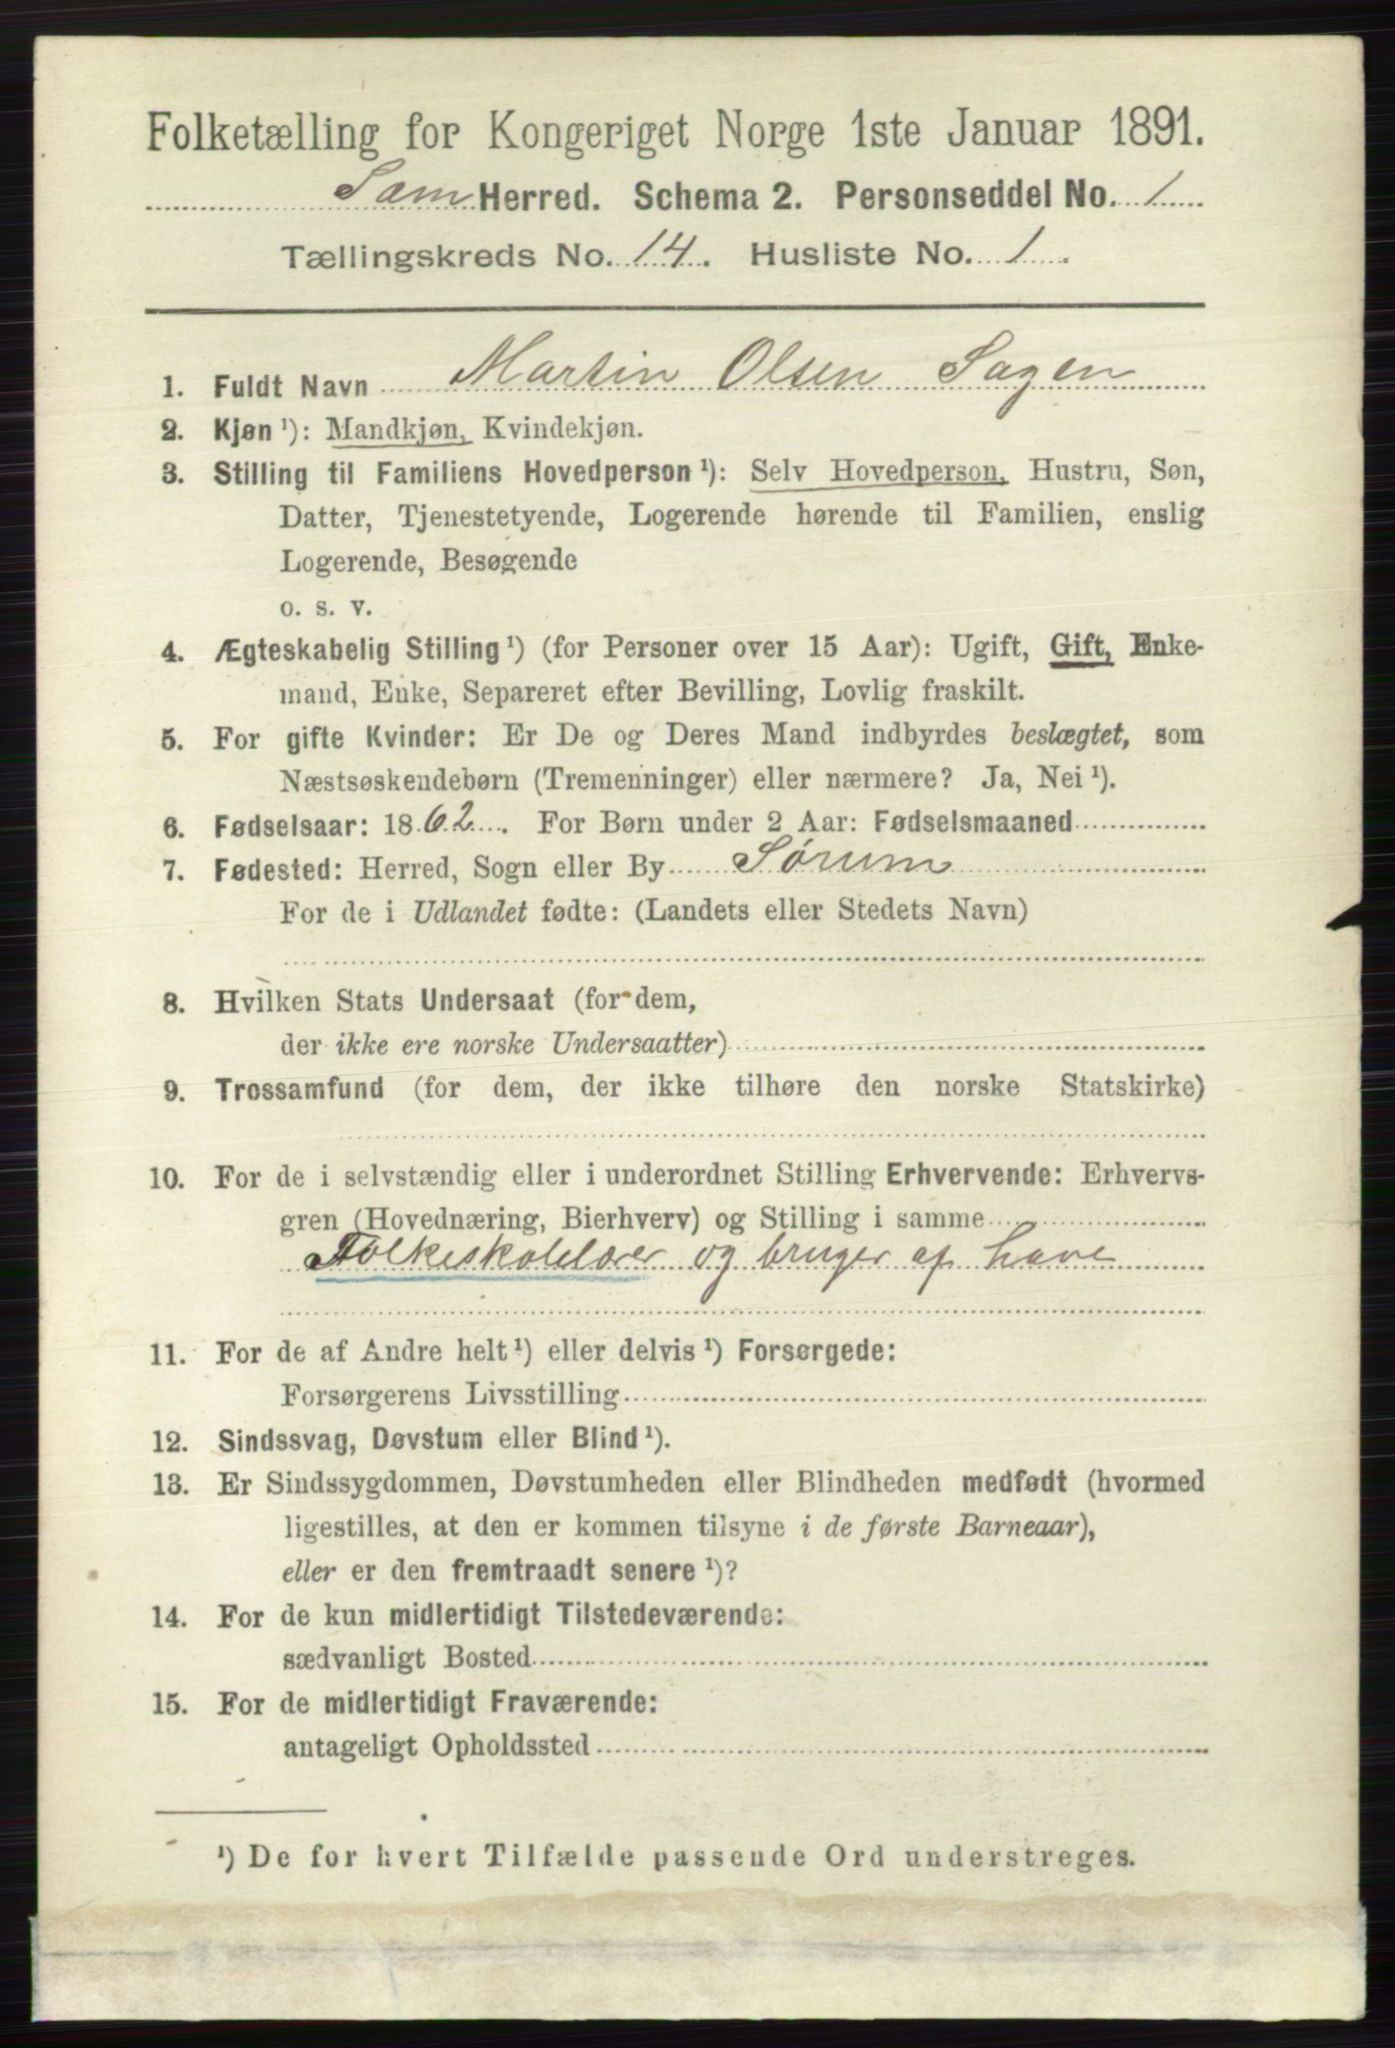 Folketælling for Kongeriget Norge 1ste Januar 1891.
Sem Herred. Schema 2. Personseddel No. 1
Tællingskreds No. 14. Husliste No. 1.
1. Fuldt Navn Martin Olsen Sagen
2. Kjøn¹): Mandkjøn, Kvindekjøn.
3. Stilling til Familiens Hovedperson¹): Selv Hovedperson, Hustru, Søn,
Datter, Tjenestetyende, Logerende hørende til Familien, enslig
Logerende, Besøgende
o. s. v.
4. Ægteskabelig Stilling¹) (for Personer over 15 Aar): Ugift, Gift, Enke-
mand, Enke, Separeret efter Bevilling, Lovlig fraskilt.
5. For gifte Kvinder: Er De og Deres Mand indbyrdes beslægtet, som
Næstsøskendebørn (Tremenninger) eller nærmere? Ja, Nei¹).
6. Fødselsaar: 1862. For Børn under 2 Aar: Fødselsmaaned
7. Fødested: Herred, Sogn eller By Sørum
For de i Udlandet fødte: (Landets eller Stedets Navn)
8. Hvilken Stats Undersaat (for dem,
der ikke ere norske Undersaatter)
9. Trossamfund (for dem, der ikke tilhøre den norske Statskirke)
10. For de i selvstændig eller i underordnet Stilling Erhvervende: Erhvervs-
gren (Hovednæring, Bierhverv) og Stilling i samme
Folkeskolelærer og bruger af have
11. For de af Andre helt¹) eller delvis¹) Forsørgede:
Forsørgerens Livsstilling
12. Sindssvag, Døvstum eller Blind¹).
13. Er Sindssygdommen, Døvstumheden eller Blindheden medfødt (hvormed
ligestilles, at den er kommen tilsyne i de første Barneaar),
eller er den fremtraadt senere¹)?
14. For de kun midlertidigt Tilstedeværende:
sædvanligt Bosted
15. For de midlertidigt Fraværende:
antageligt Opholdssted
¹) De for hvert Tilfælde passende Ord understreges.